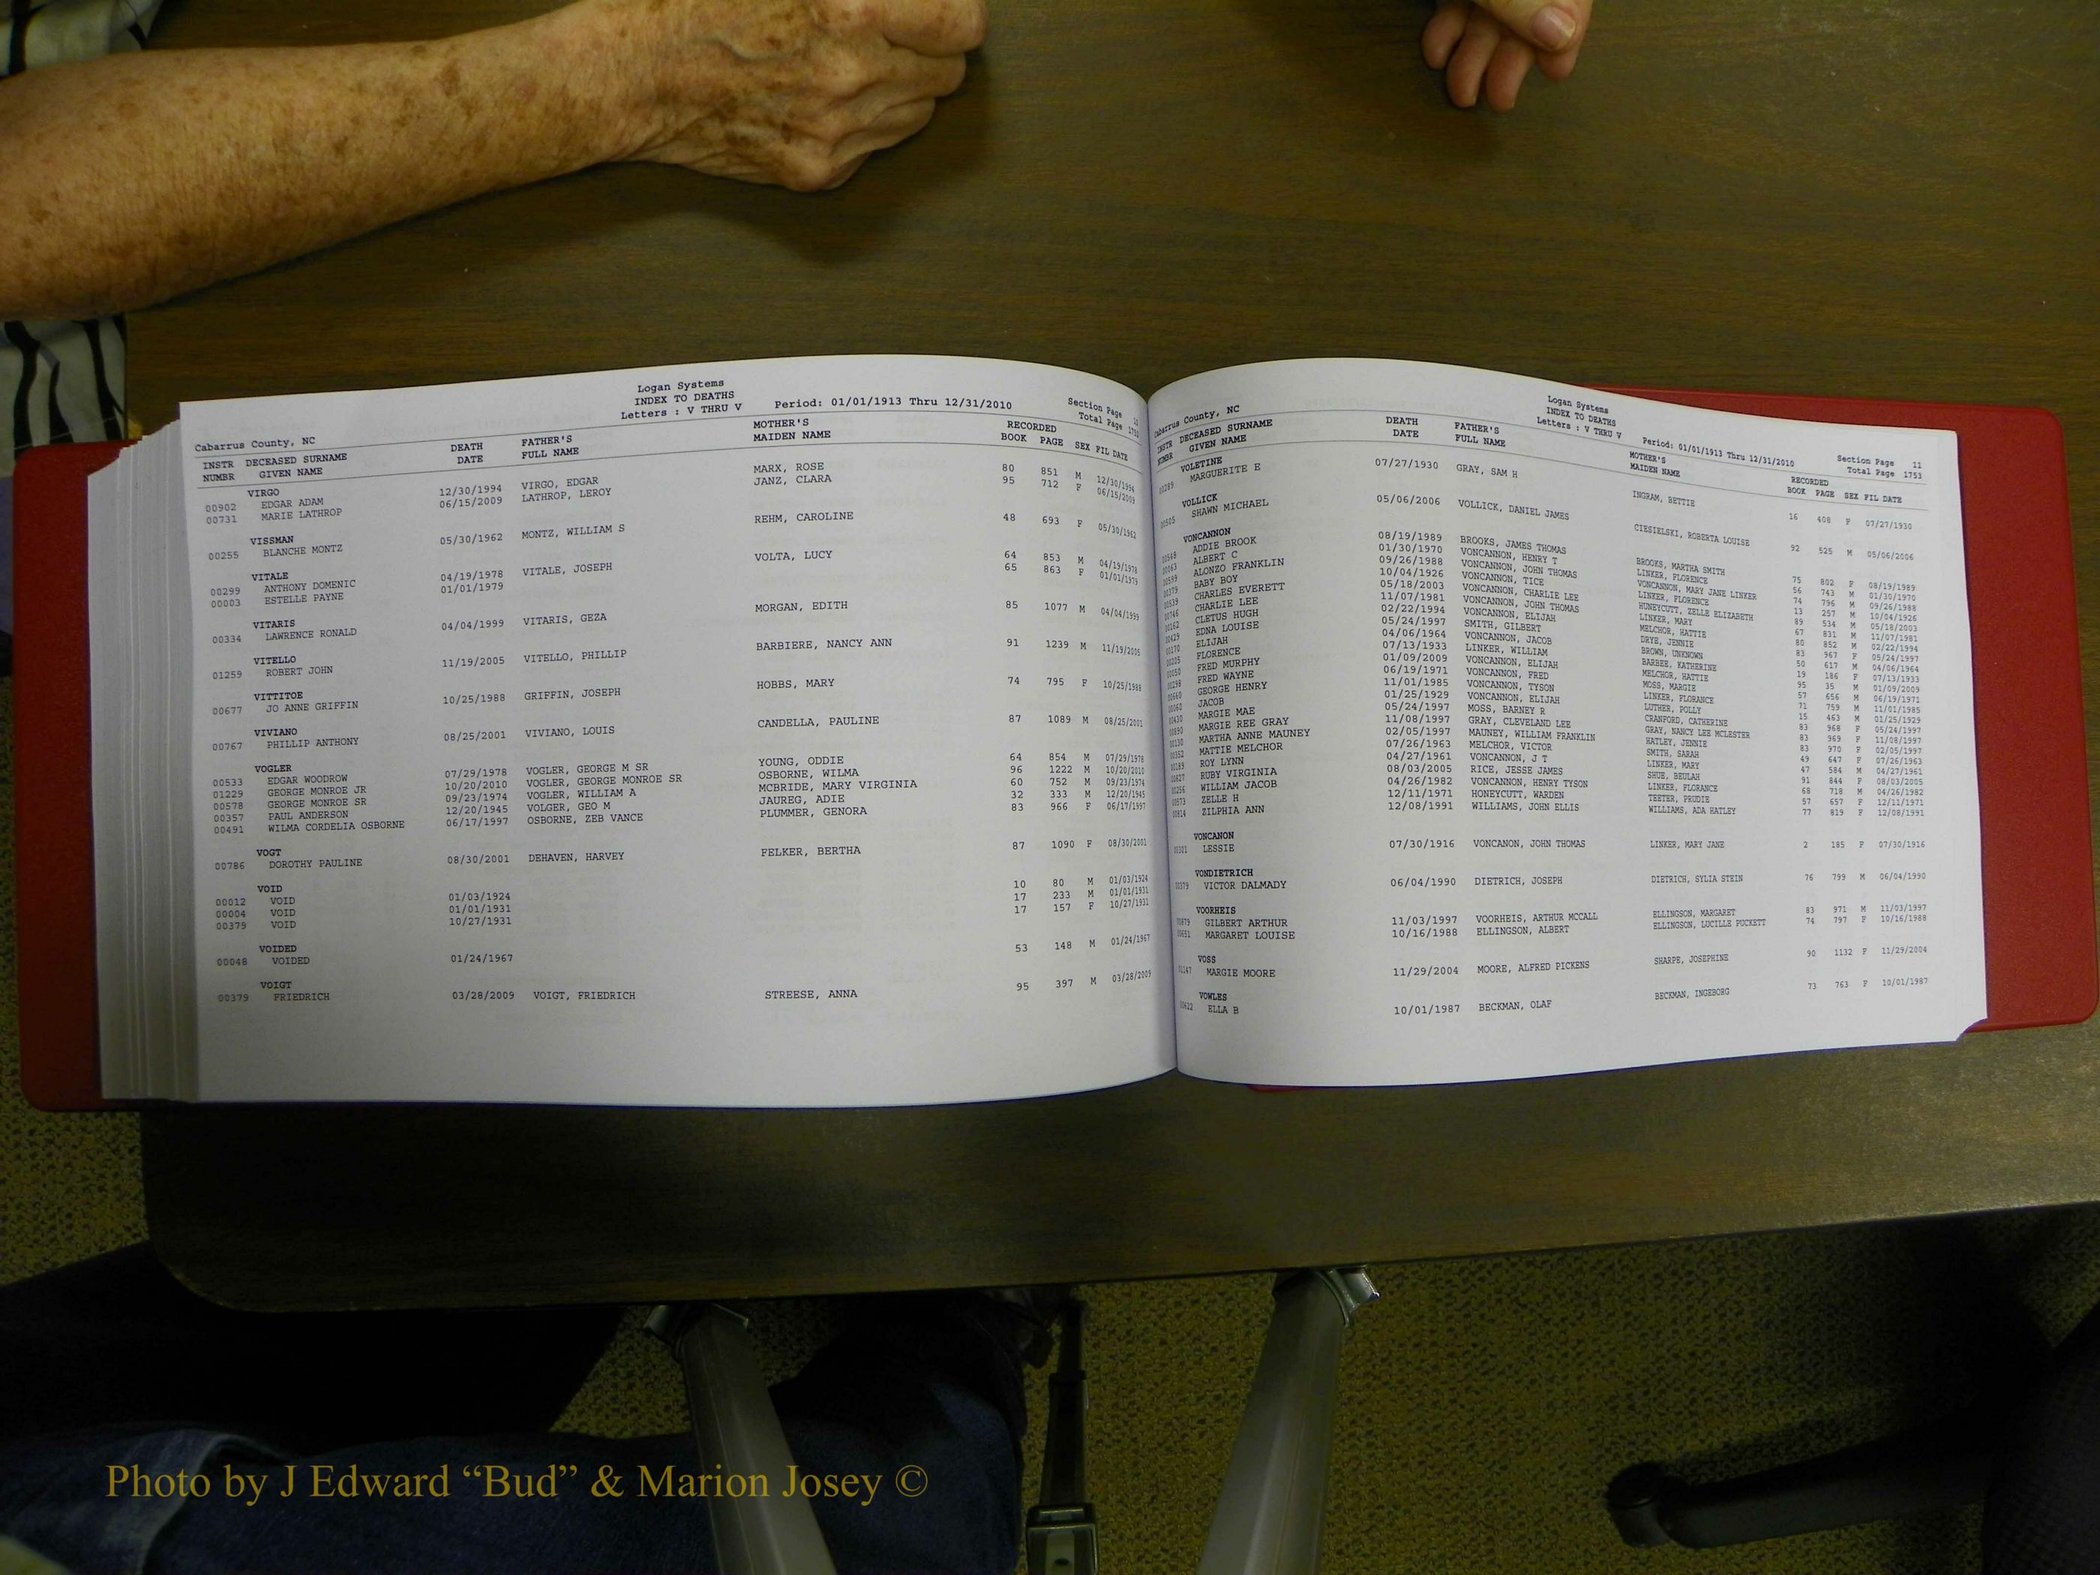 Logan Systems
INDEX TO DEATHS
Letters : V THRU V Period: 01/01/1913 Thru 12/31/2010
Section Page 10
Total Page 1752
Cabarrus County, NC
INSTR DECEASED SURNAME DEATH FATHER'S MOTHER'S RECORDED
NUMBR GIVEN NAME DATE FULL NAME MAIDEN NAME BOOK PAGE SEX FIL DATE
VIRGO
00902 EDGAR ADAM 12/30/1994 VIRGO, EDGAR MARX, ROSE 80 851 M 12/30/1994
00731 MARIE LATHROP 06/15/2009 LATHROP, LEROY JANZ, CLARA 95 712 F 06/15/2009
VISSMAN
00255 BLANCHE MONTZ 05/30/1962 MONTZ, WILLIAM S REHM, CAROLINE 48 693 F 05/30/1962
VITALE
00299 ANTHONY DOMENIC 04/19/1978 VITALE, JOSEPH VOLTA, LUCY 64 853 M 04/19/1978
00003 ESTELLE PAYNE 01/01/1979 65 863 F 01/01/1979
VITARIS
00334 LAWRENCE RONALD 04/04/1999 VITARIS, GEZA MORGAN, EDITH 85 1077 M 04/04/1999
VITELLO
01259 ROBERT JOHN 11/19/2005 VITELLO, PHILLIP BARBIERE, NANCY ANN 91 1239 M 11/19/2005
VITTITOE
00677 JO ANNE GRIFFIN 10/25/1988 GRIFFIN, JOSEPH HOBBS, MARY 74 795 F 10/25/1988
VIVIANO
00767 PHILLIP ANTHONY 08/25/2001 VIVIANO, LOUIS CANDELLA, PAULINE 87 1089 M 08/25/2001
VOGLER
00533 EDGAR WOODROW 07/29/1978 VOGLER, GEORGE M SR YOUNG, ODDIE 64 854 M 07/29/1978
01229 GEORGE MONROE JR 10/20/2010 VOGLER, GEORGE MONROE SR OSBORNE, WILMA 96 1222 M 10/20/2010
00578 GEORGE MONROE SR 09/23/1974 VOGLER, WILLIAM A MCBRIDE, MARY VIRGINIA 60 752 M 09/23/1974
00357 PAUL ANDERSON 12/20/1945 VOLGER, GEO M JAUREG, ADIE 32 333 M 12/20/1945
00491 WILMA CORDELIA OSBORNE 06/17/1997 OSBORNE, ZEB VANCE PLUMMER, GENORA 83 966 F 06/17/1997
VOGT
00786 DOROTHY PAULINE 08/30/2001 DEHAVEN, HARVEY FELKER, BERTHA 87 1090 F 08/30/2001
VOID
00012 VOID 01/03/1924 10 80 M 01/03/1924
00004 VOID 01/01/1931 17 233 M 01/01/1931
00379 VOID 10/27/1931 17 157 F 10/27/1931
VOIDED
00048 VOIDED 01/24/1967 53 148 M 01/24/1967
VOIGT
00379 FRIEDRICH 03/28/2009 VOIGT, FRIEDRICH STREESE, ANNA 95 397 M 03/28/2009
Logan Systems
INDEX TO DEATHS
Letters : V THRU V Period: 01/01/1913 Thru 12/31/2010
Section Page 11
Total Page 1753
Cabarrus County, NC
INSTR DECEASED SURNAME DEATH FATHER'S MOTHER'S RECORDED
NUMBR GIVEN NAME DATE FULL NAME MAIDEN NAME BOOK PAGE SEX FIL DATE
VOLETINE
00289 MARGUERITE E 07/27/1930 GRAY, SAM H INGRAM, BETTIE 16 408 F 07/27/1930
VOLLICK
00505 SHAWN MICHAEL 05/06/2006 VOLLICK, DANIEL JAMES CIESIELSKI, ROBERTA LOUISE 92 525 M 05/06/2006
VONCANNON
00568 ADDIE BROOK 08/19/1989 BROOKS, JAMES THOMAS BROOKS, MARTHA SMITH 75 802 F 08/19/1989
00063 ALBERT C 01/30/1970 VONCANNON, HENRY T LINKER, FLORENCE 56 743 M 01/30/1970
00599 ALONZO FRANKLIN 09/26/1988 VONCANNON, JOHN THOMAS VONCANNON, MARY JANE LINKER 74 796 M 09/26/1988
00379 BABY BOY 10/04/1926 VONCANNON, TICE LINKER, FLORENCE 13 257 M 10/04/1926
00539 CHARLES EVERETT 05/18/2003 VONCANNON, CHARLIE LEE HUNEYCUTT, ZELLE ELIZABETH 89 534 M 05/18/2003
00746 CHARLIE LEE 11/07/1981 VONCANNON, JOHN THOMAS LINKER, MARY 67 831 M 11/07/1981
00162 CLETUS HUGH 02/22/1994 VONCANNON, ELIJAH MELCHOR, HATTIE 80 852 M 02/22/1994
00429 EDNA LOUISE 05/24/1997 SMITH, GILBERT DRYE, JENNIE 83 967 F 05/24/1997
00170 ELIJAH 04/06/1964 VONCANNON, JACOB BROWN, UNKNOWN 50 617 M 04/06/1964
00205 FLORENCE 07/13/1933 LINKER, WILLIAM BARBEE, KATHERINE 19 186 F 07/13/1933
00050 FRED MURPHY 01/09/2009 VONCANNON, ELIJAH MELCHOR, HATTIE 95 35 M 01/09/2009
00298 FRED WAYNE 06/19/1971 VONCANNON, FRED MOSS, MARGIE 57 656 M 06/19/1971
00660 GEORGE HENRY 11/01/1985 VONCANNON, TYSON LINKER, FLORANCE 71 759 M 11/01/1985
00060 JACOB 01/25/1929 VONCANNON, ELIJAH LUTHER, POLLY 15 463 M 01/25/1929
00430 MARGIE MAE 05/24/1997 MOSS, BARNEY R CRANFORD, CATHERINE 83 968 F 05/24/1997
00890 MARGIE REE GRAY 11/08/1997 GRAY, CLEVELAND LEE GRAY, NANCY LEE MCLESTER 83 969 F 11/08/1997
00130 MARTHA ANNE MAUNEY 02/05/1997 MAUNEY, WILLIAM FRANKLIN HATLEY, JENNIE 83 970 F 02/05/1997
00352 MATTIE MELCHOR 07/26/1963 MELCHOR, VICTOR SMITH, SARAH 49 647 F 07/26/1963
00189 ROY LYNN 04/27/1961 VONCANNON, J T LINKER, MARY 47 584 M 04/27/1961
00827 RUBY VIRGINIA 08/03/2005 RICE, JESSE JAMES SHUE, BEULAH 91 844 F 08/03/2005
00256 WILLIAM JACOB 04/26/1982 VONCANNON, HENRY TYSON LINKER, FLORANCE 68 718 M 04/26/1982
00573 ZELLE H 12/11/1971 HONEYCUTT, WARDEN TEETER, PRUDIE 57 657 F 12/11/1971
00814 ZILPHIA ANN 12/08/1991 WILLIAMS, JOHN ELLIS WILLIAMS, ADA HATLEY 77 819 F 12/08/1991
VONCANON
00301 LESSIE 07/30/1916 VONCANON, JOHN THOMAS LINKER, MARY JANE 2 185 F 07/30/1916
VONDIETRICH
00379 VICTOR DALMADY 06/04/1990 DIETRICH, JOSEPH DIETRICH, SYLIA STEIN 76 799 M 06/04/1990
VOORHEIS
00879 GILBERT ARTHUR 11/03/1997 VOORHEIS, ARTHUR MCCALL ELLINGSON, MARGARET 83 971 M 11/03/1997
00651 MARGARET LOUISE 10/16/1988 ELLINGSON, ALBERT ELLINGSON, LUCILLE PUCKETT 74 797 F 10/16/1988
VOSS
01147 MARGIE MOORE 11/29/2004 MOORE, ALFRED PICKENS SHARPE, JOSEPHINE 90 1132 F 11/29/2004
VOWLES
00622 ELLA B 10/01/1987 BECKMAN, OLAF BECKMAN, INGEBORG 73 763 F 10/01/1987
Photo by J Edward “Bud” & Marion Josey ©